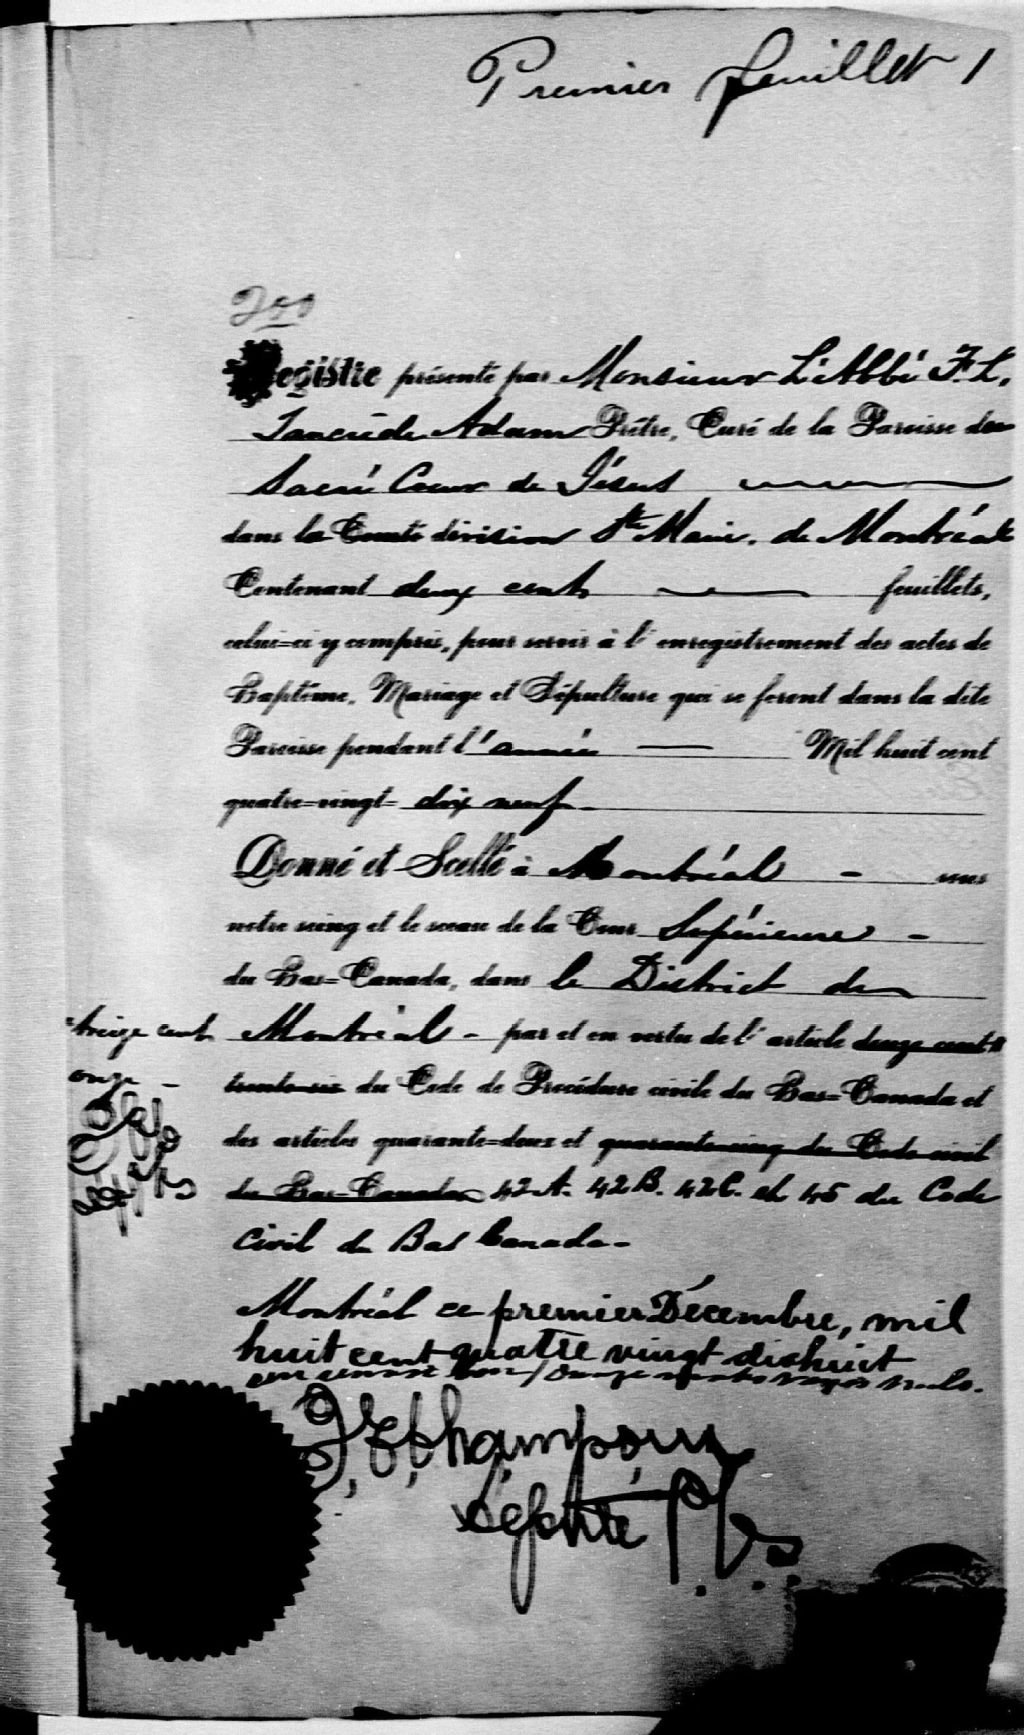 Premier feuillet 1
200
Registre présenté par Monsieur L'Abbé F. L.
Tancrède Adam Prêtre, Curé de la Paroisse du
Sacré Coeur de Jésus
dans le Comté division Ste Marie. de Montréal
Contenant deux cents feuillets,
celui=ci y compris, pour servir à l'enregistrement des actes de
Baptême, Mariage et Sépulture qui se feront dans la dite
Paroisse pendant l'année Mil huit cent
quatre=vingt= dix neuf
Donné et Scellé à Montréal - sous
notre seing et le sceau de la Cour Supérieure -
du Bas=Canada, dans le District de
Montréal - par et en vertu de l'article douze cent
treize cent
onze
trente-six du Code de Procédure civile du Bas=Canada et
des articles quarante=deux et quarante-cinq du Code civil
du Bas-Canada 42 A. 42 B. 42 C. et 45 du Code
Civil du Bas Canada -
Montréal ce premier Décembre, mil
huit cent quatre vingt dixhuit
un renvoi bon / onze mots rayés nuls.
Champoux
Député P.